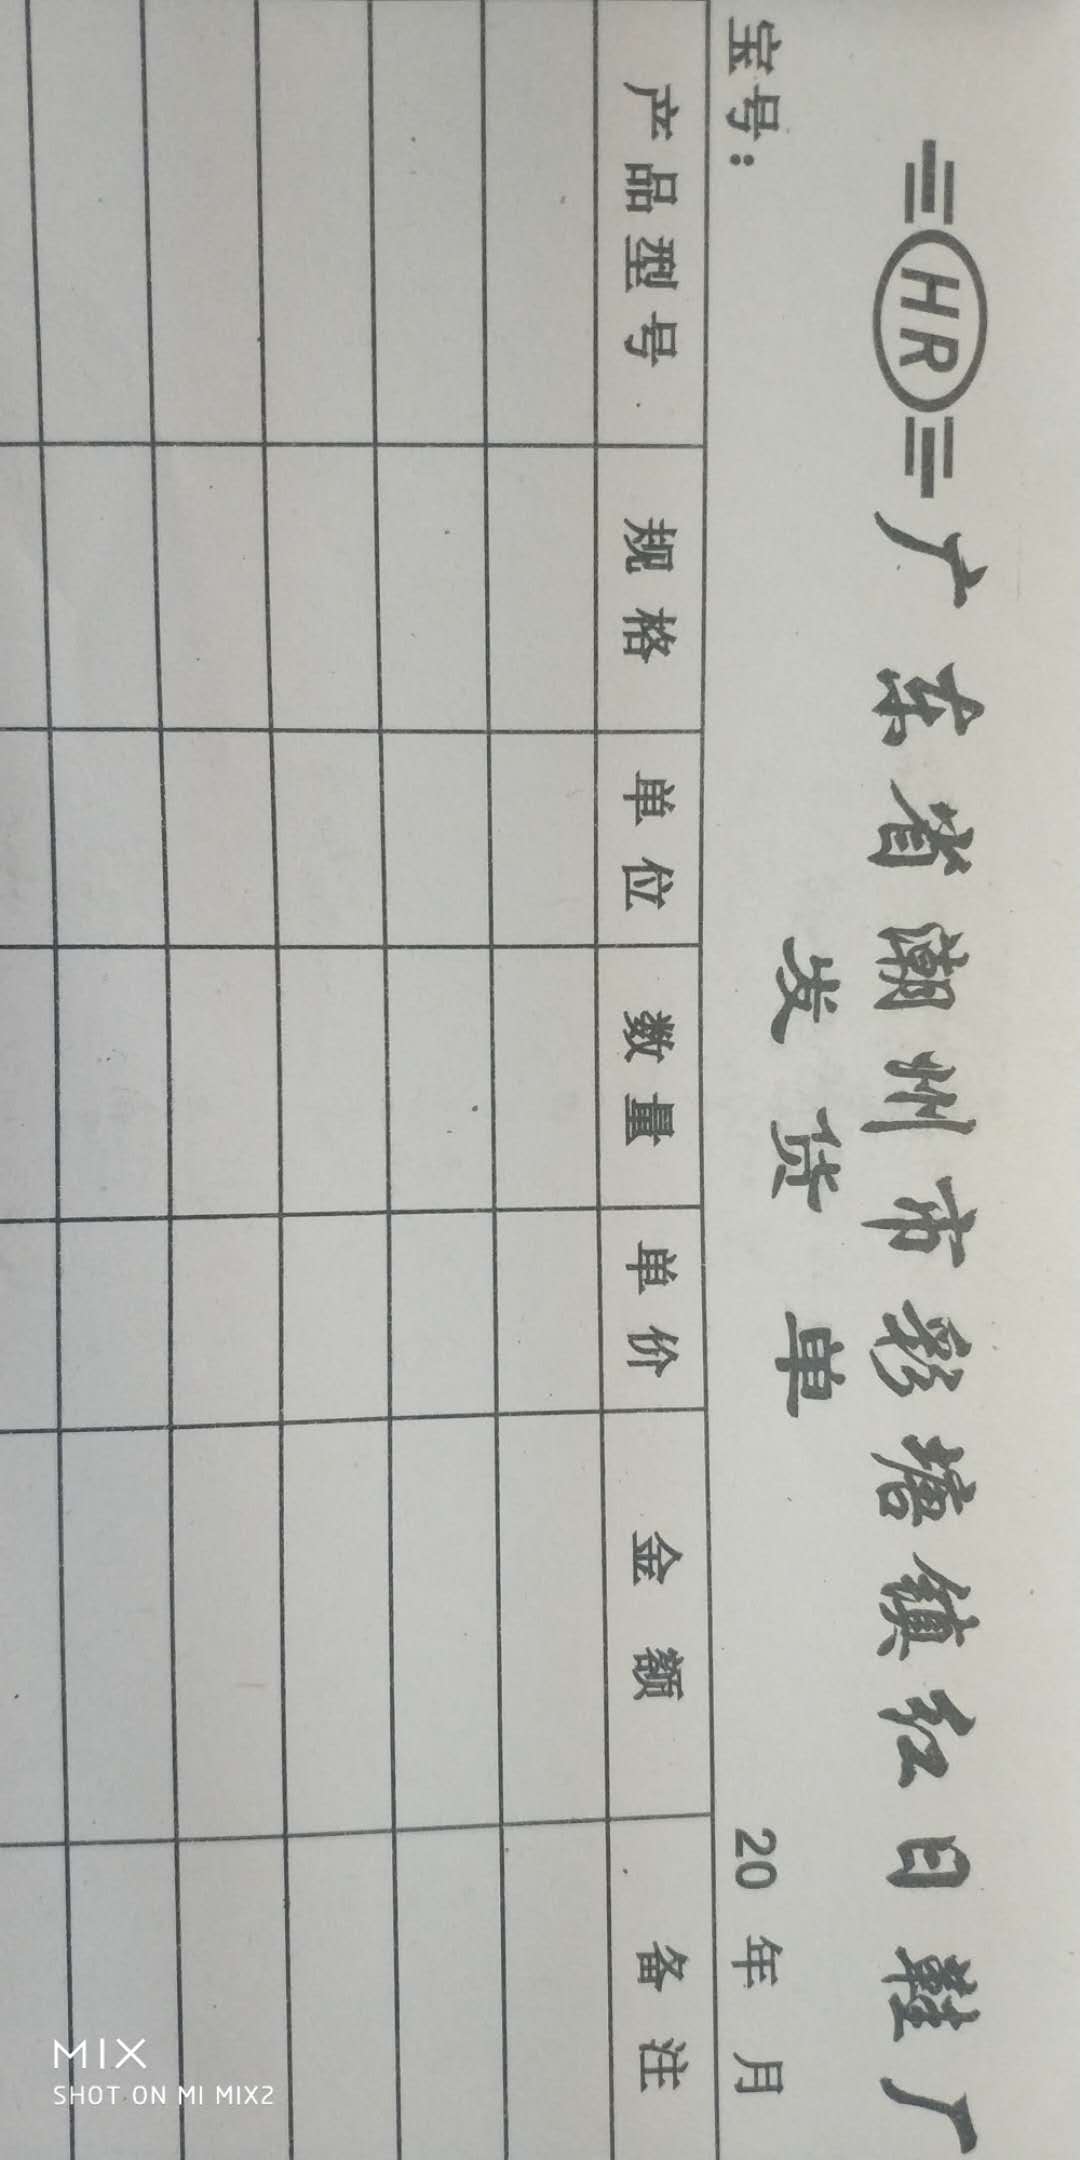 HR 广东省潮州市彩塘镇红日鞋厂
发货单
宝号： 20 年 月
产品型号 规格 单位 数量 单价 金额 备注
MIX
SHOT ON MI MIX2